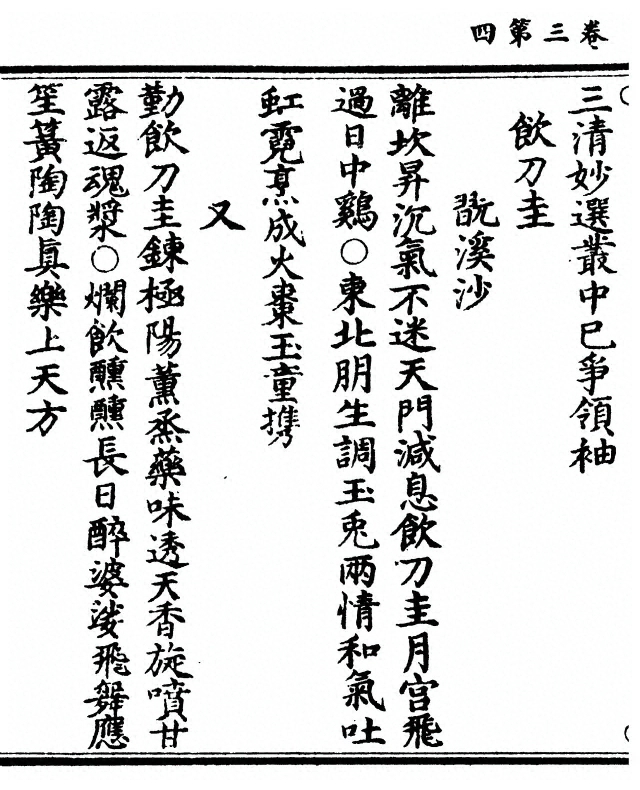 卷三第四
三清妙選叢中已爭領袖
飲刀圭
翫溪沙
離坎昇沉氣不迷天門減息飲刀圭月宮飛
過日中鷄○東北朋生調玉兎兩情和氣吐
虹霓烹成火棗玉童携
又
勤飲刀圭鍊極陽薰烝藥味透天香旋噴甘
露返魂漿○爛飲醺醺長日醉婆娑飛舞應
笙簧陶陶眞樂上天方